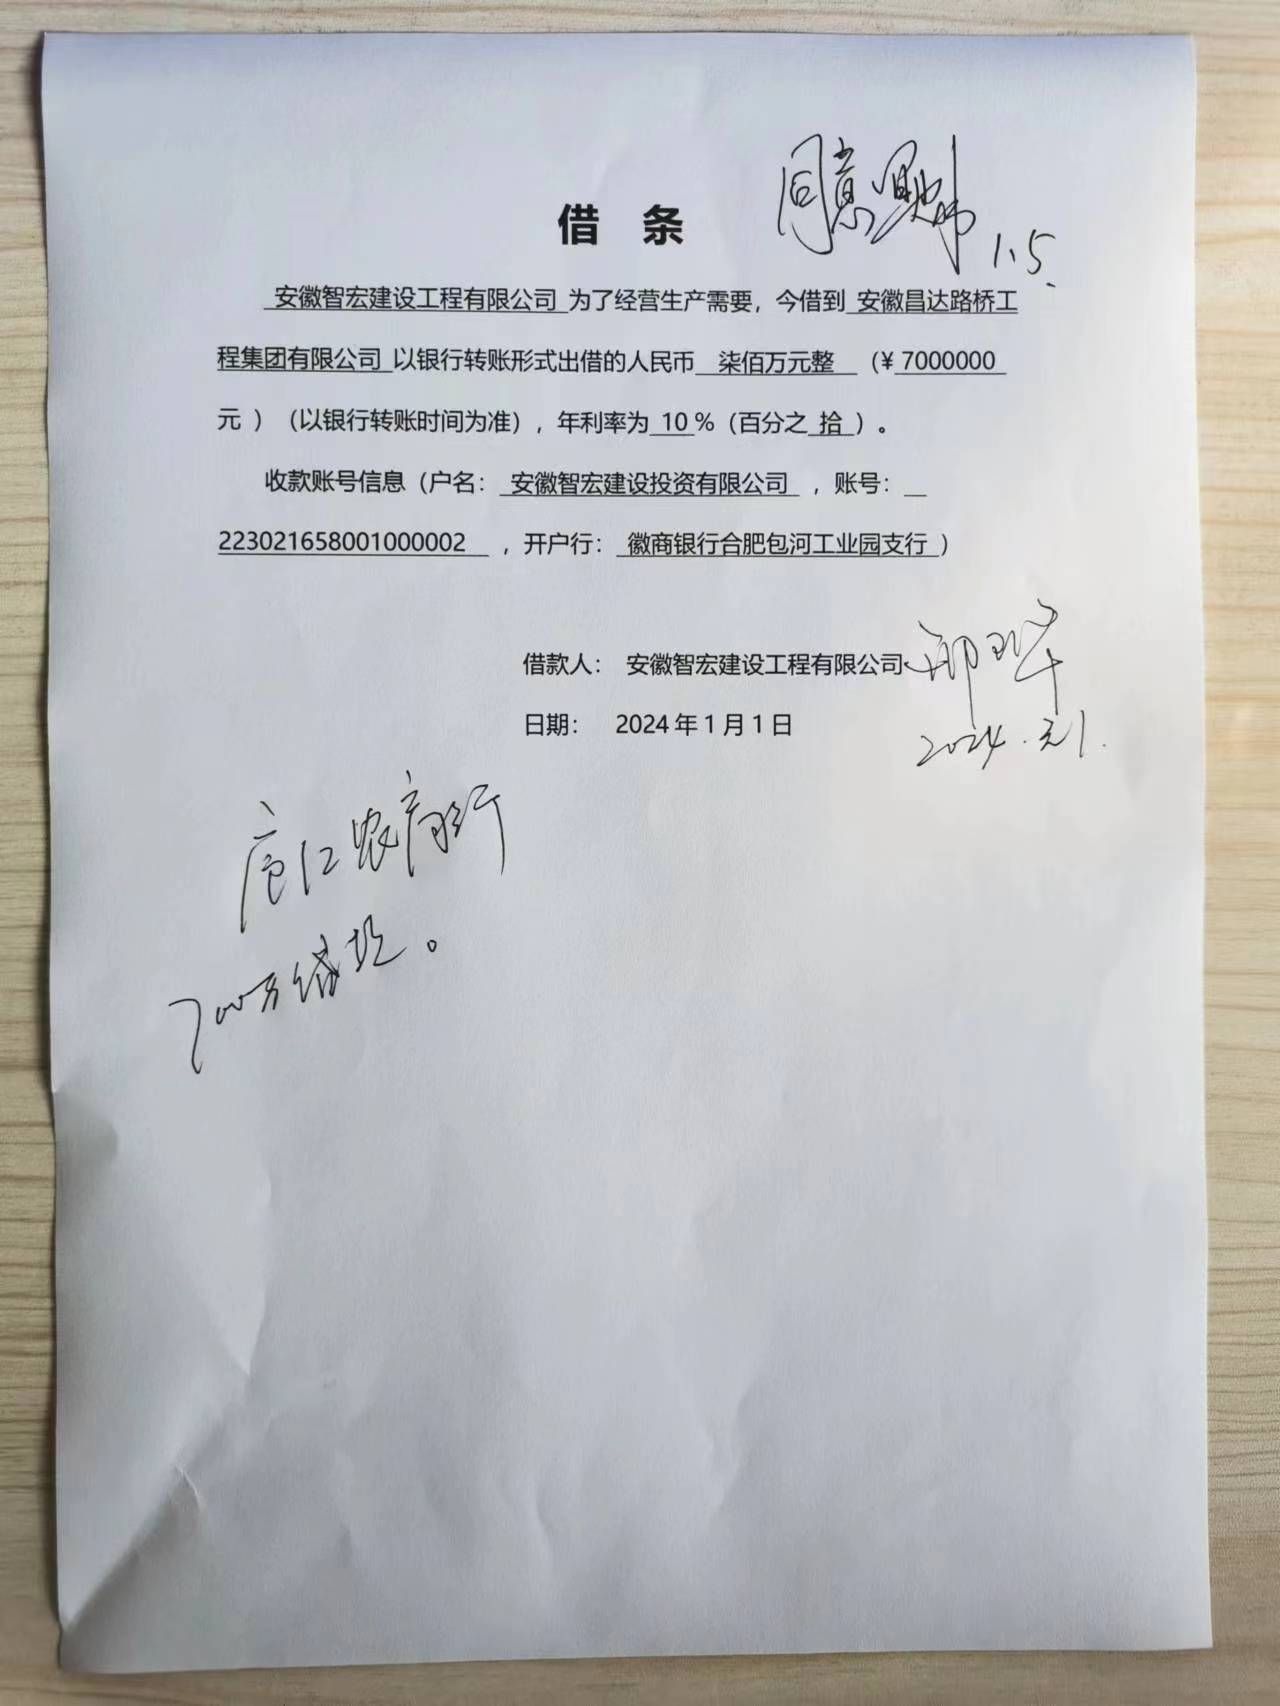 同意 1.5.
借 条
安徽智宏建设工程有限公司 为了经营生产需要，今借到 安徽昌达路桥工
程集团有限公司 以银行转账形式出借的人民币 柒佰万元整 （¥ 7000000
元 ）（以银行转账时间为准），年利率为 10 %（百分之 拾 ）。
收款账号信息（户名： 安徽智宏建设投资有限公司 ，账号：
223021658001000002 ，开户行： 徽商银行合肥包河工业园支行 ）
借款人： 安徽智宏建设工程有限公司
日期： 2024 年 1 月 1 日
2024.元1.
庐江农商行
700万续投。